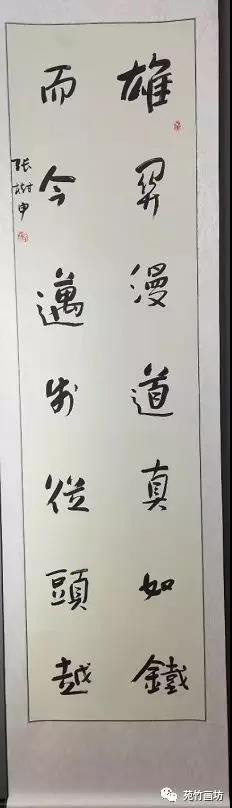 雄关漫道真如鐵
而今邁步從頭越
張樹申
苑竹画坊